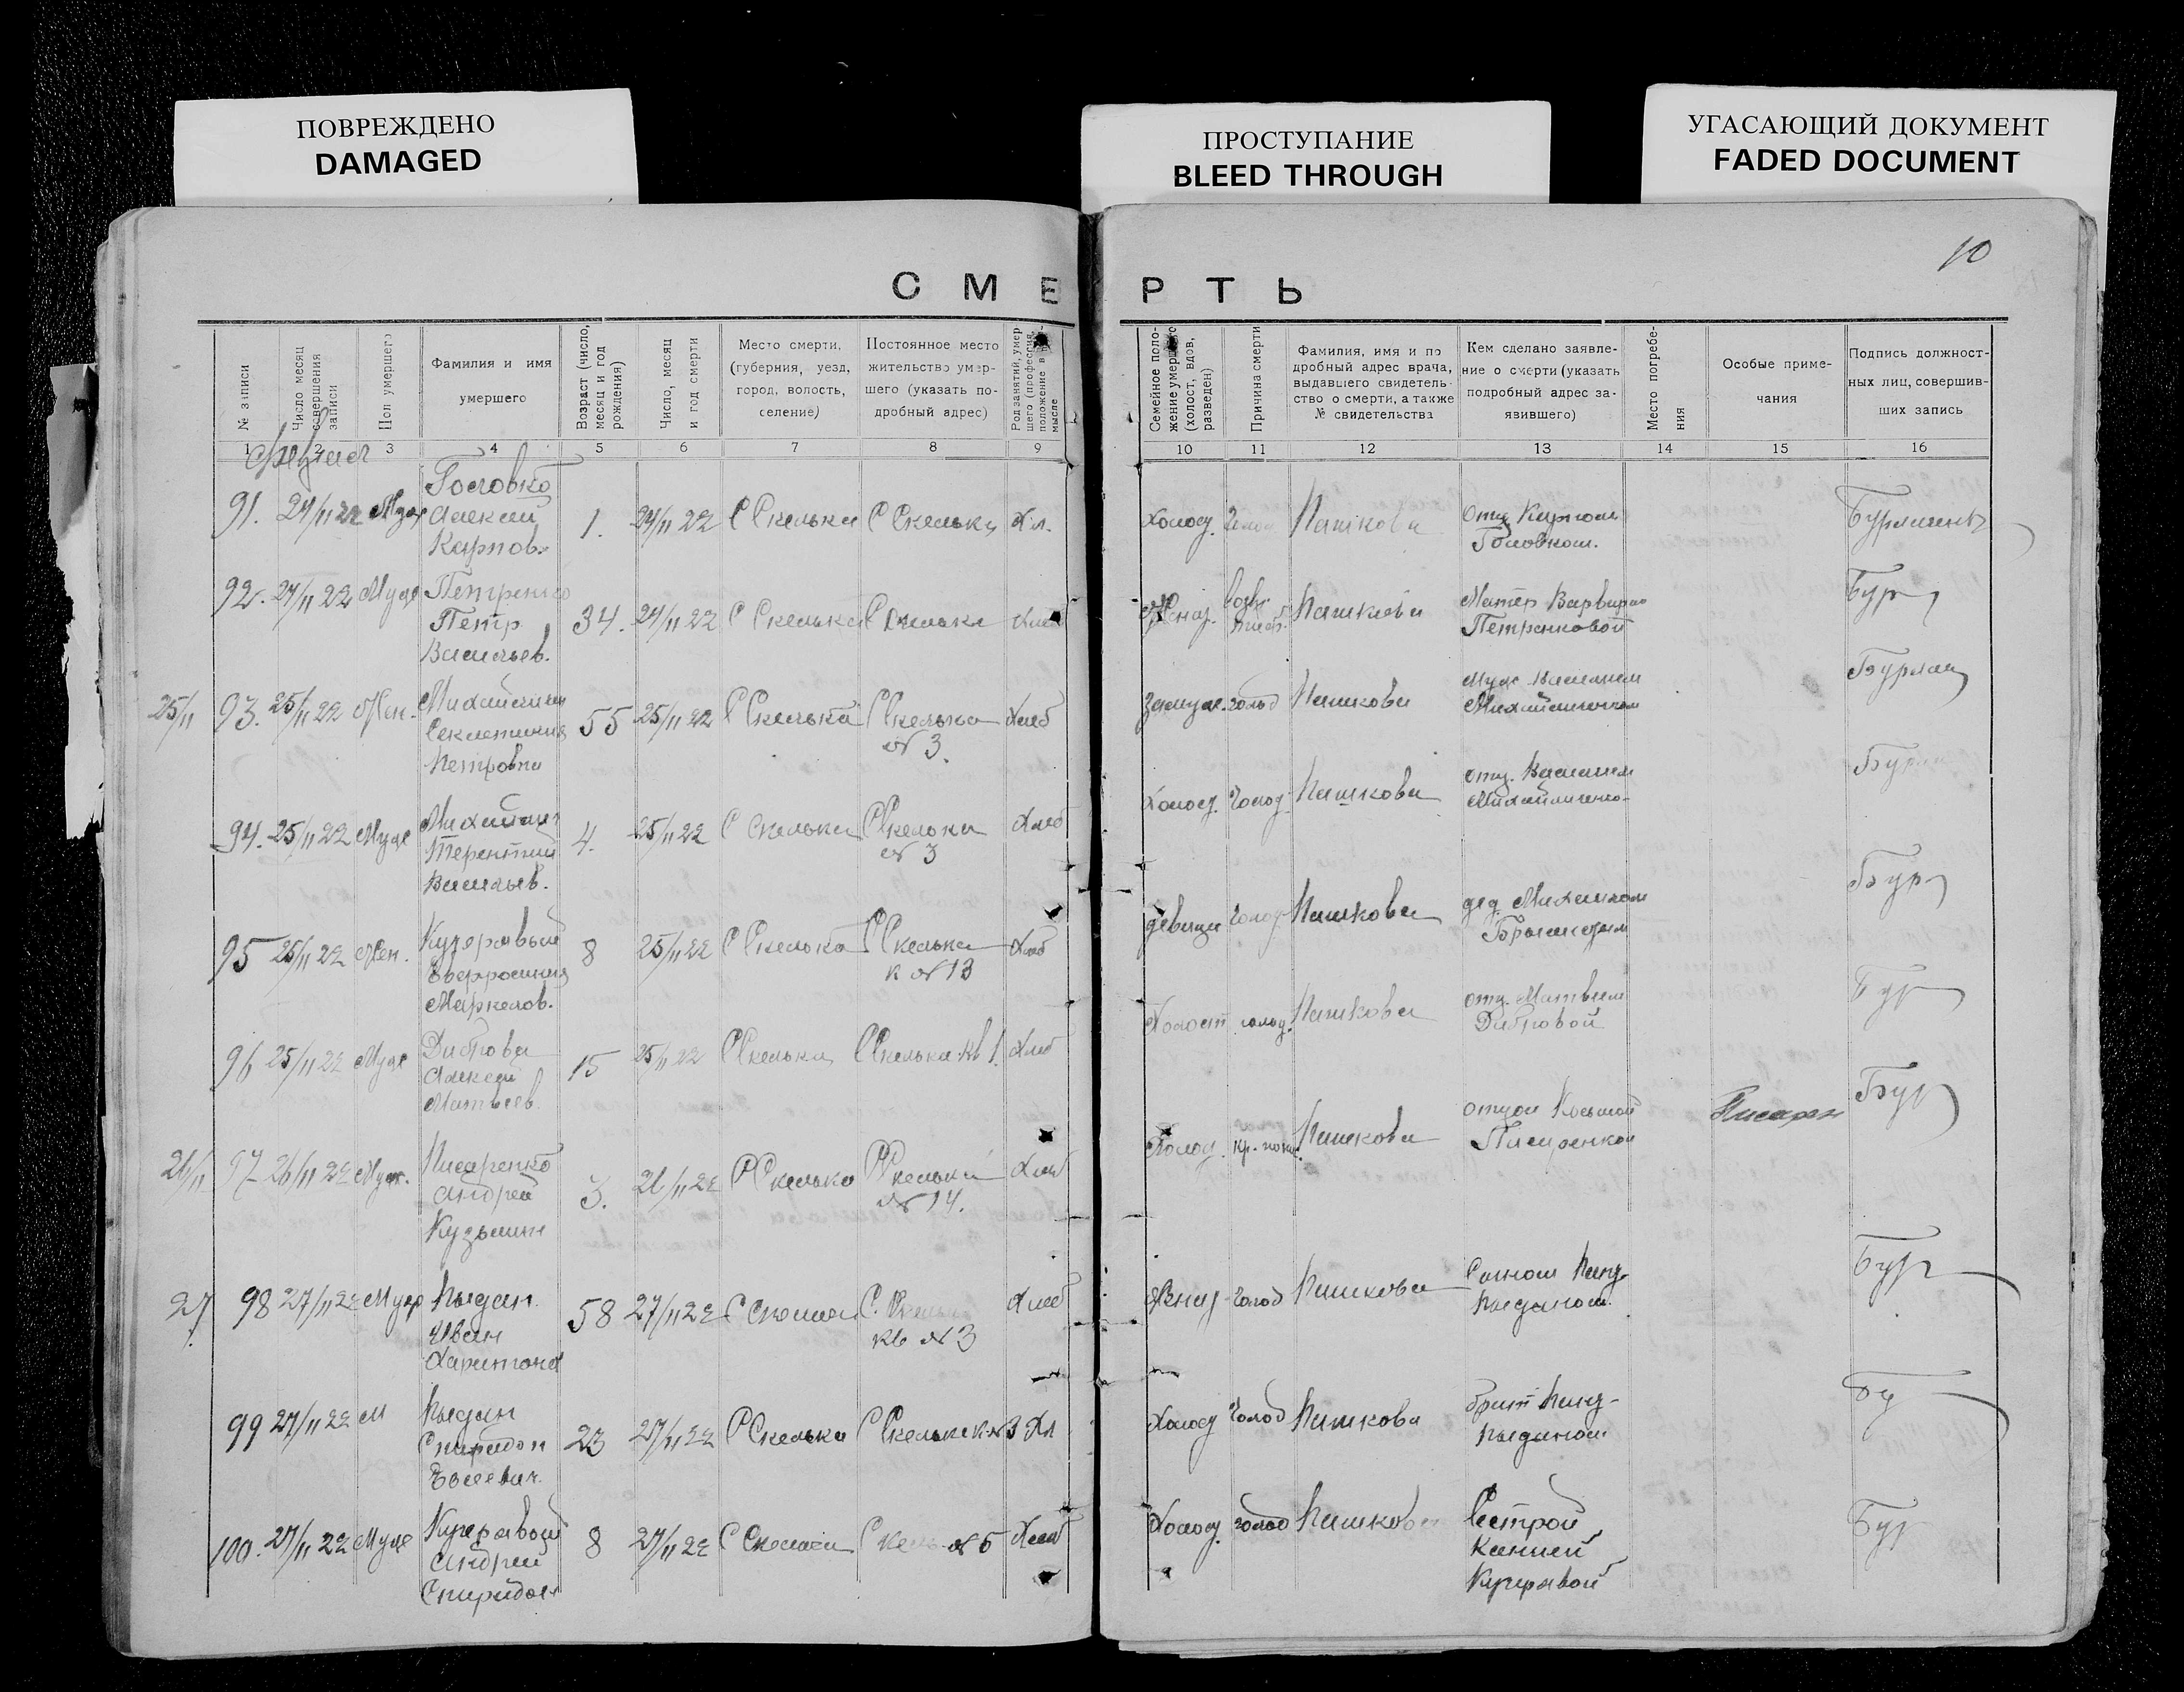 ПОВРЕЖДЕНО
DAMAGED
ПРОСТУПАНИЕ
BLEED THROUGH
УГАСАЮЩИЙ ДОКУМЕНТ
FADED DOCUMENT
10
СМЕРТЬ
№ записи
Число месяц совершения записи
Пол умершего
Фамилия и имя умершего
Возраст (число, месяц и год рождения)
Число, месяц и год смерти
Место смерти, (губерния, уезд, город, волость, селение)
Постоянное место жительства умершего (указать подробный адрес)
Род занятий, умершего (профессия, положение в промысле
Семейное положение умершего (холост, вдов, разведен)
Причина смерти
Фамилия, имя и подробный адрес врача, выдавшего свидетельство о смерти, а также № свидетельства
Кем сделано заявление о смерти (указать подробный адрес заявившего)
Место погребения
Особые примечания
Подпись должностных лиц, совершивших запись
1 2 3 4 5 6 7 8 9 10 11 12 13 14 15 16
91. 24/II 22 Муж Головко Алексей Карпов. 1. 24/II 22 С Скелька С Скелька Хл. Холост. Голод Пашкова Отц. Карпом Головком.
92. 24/II 22 Муж Петренко Петр Васильев. 34. 24/II 22 С Скелька С Скелька Хлеб Женат. Пашкова Матер Варвара Петренковой Бур
25/II 93. 25/II 22 Жен. Секлетиния Петровна 55 25/II 22 С Скелька С Скелька № 3. Хлеб Замуж. голод Пашкова Муж Василием
94. 25/II 22 Муж Терентий Васильев. 4. 25/II 22 С Скелька С Скелька № 3 Хлеб Холост. Голод Пашкова отц. Василием
95 25/II 22 Жен. Кучерявый Евфросиния Маркелов. 8 25/II 22 С Скелька С Скелька к № 13 Хлеб девица Голод Пашкова дед. Бур
96 25/II 22 Муж Диброва Алексей Матвеев. 15 25/II 22 С Скелька С Скелька кв 1. Хлеб Холост голод. Пашкова отц. Матвеем Дибровой Бур
26/II 97 26/II 22 Муж. Писаренко Андрей Кузьмин 3. 26/II 22 С Скелька С Скелька № 14. Хлеб Холост. Пашкова отцом Писаренком Писарен Бур
27. 98 27/II 22 Муж Иван Харитонов 58 27/II 22 С Скелька С. Скелька кв № 3 Хлеб Женат голод Пашкова Бур
99 27/II 22 М Спиридон Евсеевич. 23 27/II 22 С Скелька С Скелька к № 3 Хл Холост Голод Пашкова брат Бу
100. 27/II 22 Муж Кучерявой Андрей Спиридон 8 27/II 22 С Скелька № 5 Хлеб Холост. голод Пашкова Сестрой Кучерявой Бур